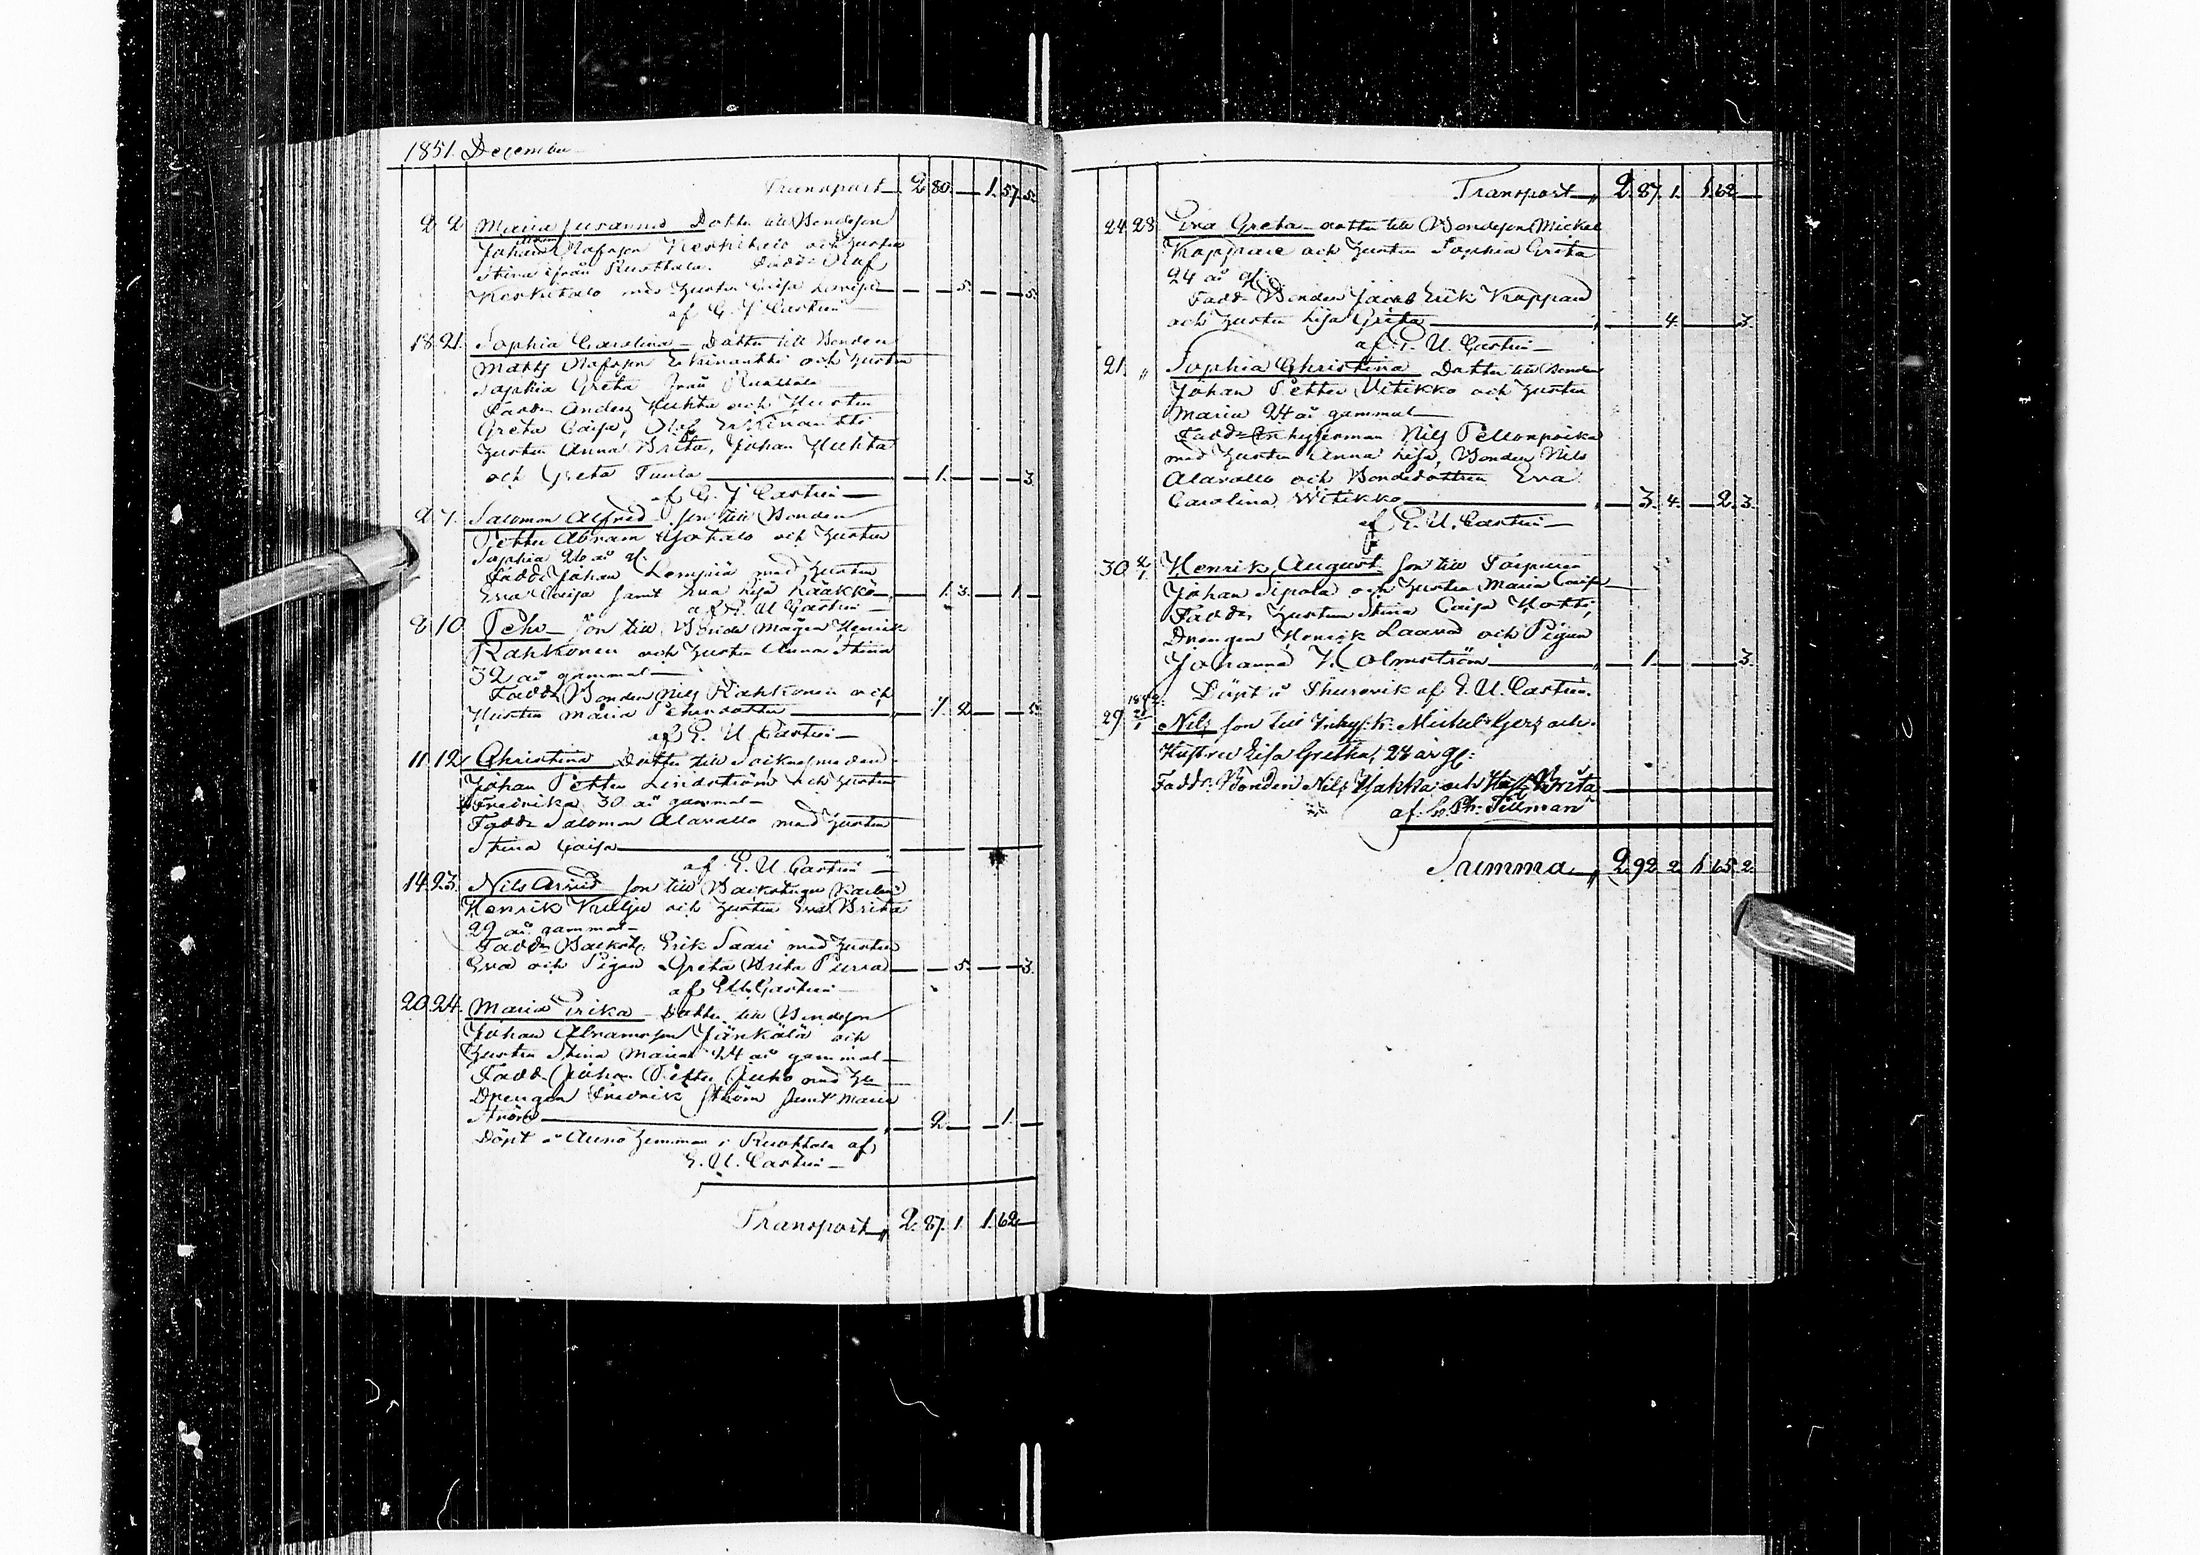 1851. December
Transport 2. 80. — 1. 57. 5.
2 2 Maria Susanna Dotter till Bondeson
Johan Olofsson Keskitalo och hustru
Stina ifrån Ruottala. Fadd: Olof
Keskitalo med hustru Caisa — 5. — 5.
af C. J. Castrén
18 21. Sophia Carolina — Dotter till Bonden
Matts Olofsson Erkinantti och hustru
Sophia Greta från Ruottala
Fadd: Anders Huhta och Hustru
Greta Caisa, Olof Erkinantti
hustru Anna Brita, Johan Huhta
och Greta — 1. — 3.
af C. J. Castrén —
2 7. Salomon Alfred son till Bonden
Petter Abram och hustru
Sophia 26 år gl.
Fadd: Johan Lempiä med hustru
Eva Caisa samt Eva Lisa Rääkkö — 1. 3. — 1. —
af E. U. Castrén —
8 10. Pehr — Son till Bonde mågen Henrik
Rahkonen och hustru Anna Stina
32 år gammal —
Fadd: Bonden Nils Rahkonen och
Hustru Maria Pehrsdotter — 1. 2. — 5.
af E. U. Castrén —
11. 12. Christina Dotter till
Johan Petter Lindström och hustru
Fredrika 30 år gammal —
Fadd: Salomon Alavallo med hustru
Stina Caisa
af E. U. Castrén —
14. 23. Nils Arvid son till
Henrik och hustru Eva Brita
29 år gammal —
Fadd: Erik Saari med hustru
Eva och Pigan Greta Brita — 5. — 3.
af E. U. Castrén —
20. 24. Maria Erika — Dotter till Bondeson
Johan Abramsson Jänkälä och
hustru Stina Maria 24 år gammal —
Fadd: Johan Petter Juho med hu
Drengen Fredrik Ström samt Maria
Ström — 2. — 1. —
Döpt å Anno hemman i Ruottala af
E. U. Castrén —
Transport 2. 87. 1. 1. 62. —
Transport 2. 87. 1. 1. 62 —
24. 28. Eva Greta — dotter till Bondeson Mickel
och hustru Sophia Greta
24 år gl.
Fadd: Bonden Jacob Erik
och hustru Lisa Greta — 4. — 3.
af E. U. Castrén —
21. " Sophia Christina Dotter till Bonden
Johan Petter Vitikko och hustru
Maria 24 år gammal —
Fadd: Inhysesman Nils Pellonpoika
med hustru Anna Lisa, Bonden Nils
Alavallo och Bondedottren Eva
Carolina Witikko — 3. 4. — 2. 3.
af E. U. Castrén —
30. 2/1 Henrik August Son till Torparen
Johan Sipola och hustru Maria Caisa
Fadd: hustrun Stina Caisa
Drengen Henrik och Pigan
Johanna V. Holmström — 1. — 3.
Döpt å Thurevik af E. U. Castrén.
29 Nils son till Inhys:k: Mickel Gerz och
Hustru Lisa Gretha, 28 år gl:
Fadd: Bonden Nils Hakka och Hust. Brita
af L. Ph: Tillman
Summa 2. 92. 2. 1. 65. 2.